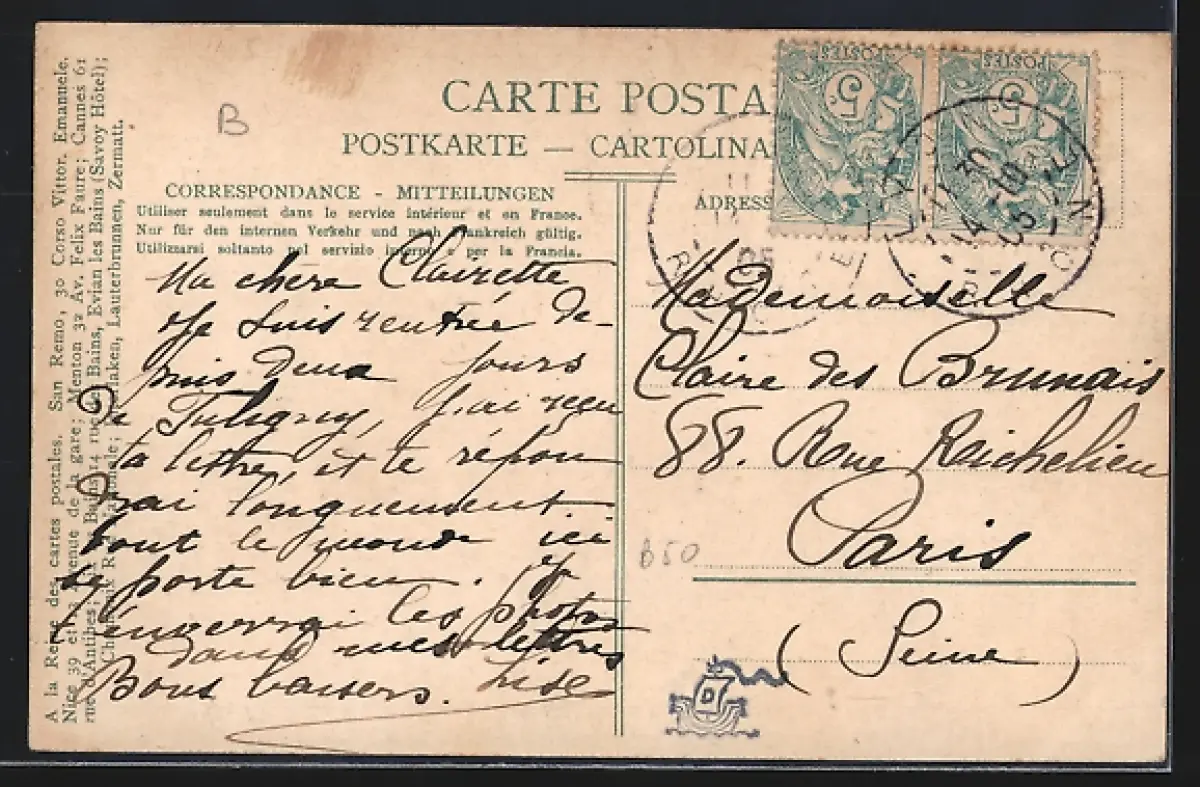 CARTE POSTA
POSTKARTE — CARTOLINA
CORRESPONDANCE - MITTEILUNGEN
Utiliser seulement dans le service intérieur et en France.
Nur für den internen Verkehr und nach Frankreich gültig.
Utilizzarsi soltanto nel servizio interno e per la Francia.
ADRESS
B
Ma chère Clairette
Je suis rentrée de-
puis deux jours
à Juligny, j'ai reçu
ta lettre, et te répon
drai longuement.
tout le monde ici
se porte bien. Je
t'enverrai les photos
dans mes lettres
Bons baisers. Lise
Mademoiselle
Claire des Brunais
88. Rue Raichelieu
Paris
(Seine)
B50
D
POSTES
5
POSTES
5
A la Reine des cartes postales. San Remo, 30 Corso Vittor. Emanuele.
Nice 39 et Avenue de la gare; Menton 32 Av. Felix Faure; Cannes 61
rue d'Antibes; Bains 14 rue des Bains, Evian les Bains (Savoy Hôtel);
Chamonix Lauterbrunnen, Zermatt.